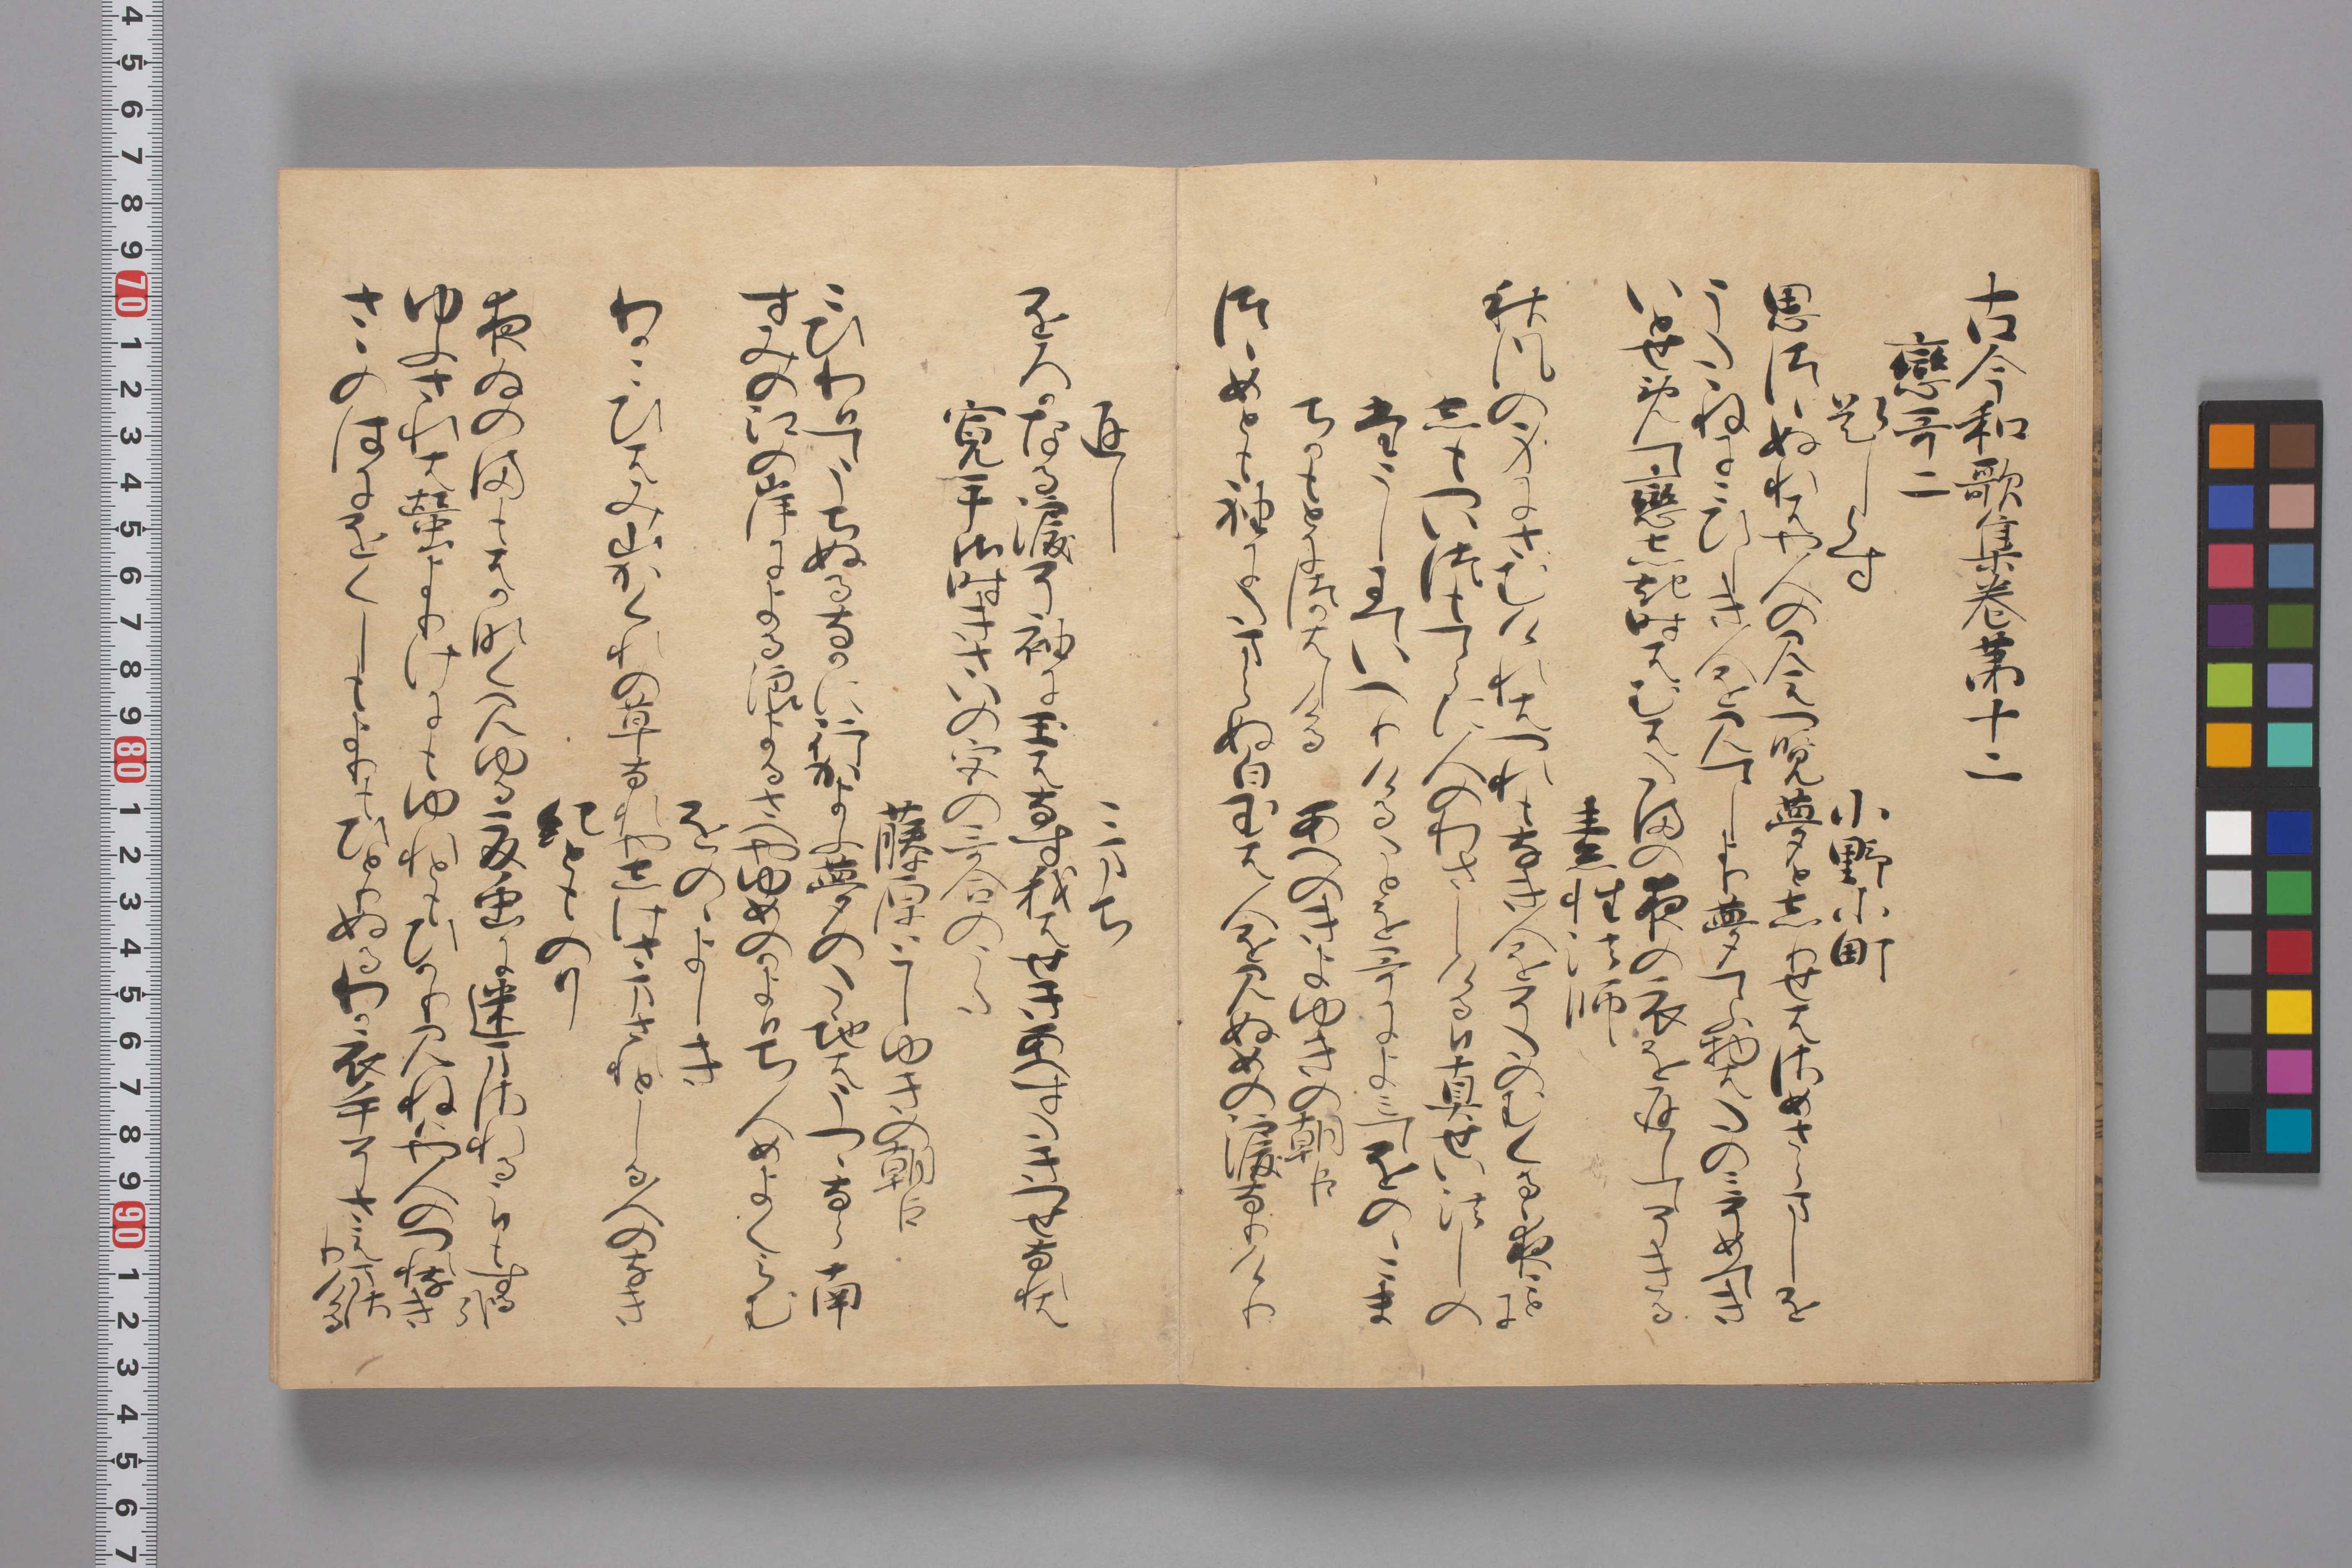 古今和歌集巻第十二
戀哥二
題しらす　小野小町
思つゝぬれはや人の見えつ覧夢としりせはさめさらましを
うたゝねにこひしき人を見てしより夢てふ物はたのみそめてき
いとせめて戀しき時はむはたまの夜の衣をかへしてそきる
素性法師
秋風の身にさむけれはつれもなき人をそたのむくるゝ夜ことに
しもついつもてらに人のわさしける日真せいほうしの
たうしにていへりけることを哥によみてをのゝこまち
かもとにつかはしける　あへのきよゆきの朝臣
つゝめとも袖にたまらぬ白玉は人を見ぬめの涙なりけり
返し　こまち
をろかなる涙そ袖に玉はなす我はせきあへすたきつせなれは
寛平御時きさいの宮の哥合のうた
藤原としゆきの朝臣
こひわひてうちぬるなかに行かよふ夢のたゝちはうつゝなら南
すみの江の岸による浪よるさへやゆめのかよひち人めよくらむ
をのゝよしき
わかこひはみ山かくれの草なれやしけさまされとしる人のなき
紀とものり
夜ゐの間もはかなく見ゆる夏虫にまとひまされるこひもする哉
ゆふされは螢よりけにもゆれともひかり見ねはや人のつれなき
さゝのはにをくしもよりもひとりぬるわか衣手そさえまさりける